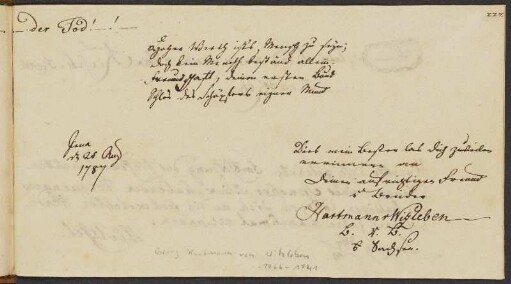 der Tod! — ! —
Hoher Werth ists, Mensch zu seyn;
doch kein Mensch bestand allein.
Freundschaft, deinen ersten Bund
Schlos des Schöpfers eigner Mund
Jena
d. 28 Aug
1787
Dies mein Bester las Dich zuweilen
erinnern an
Deinen aufrichtigen Freund
u Bruder
Hartmann v Wizleben
a. Sachsen.
Georg Hartmann von Witzleben
1766 – 1841